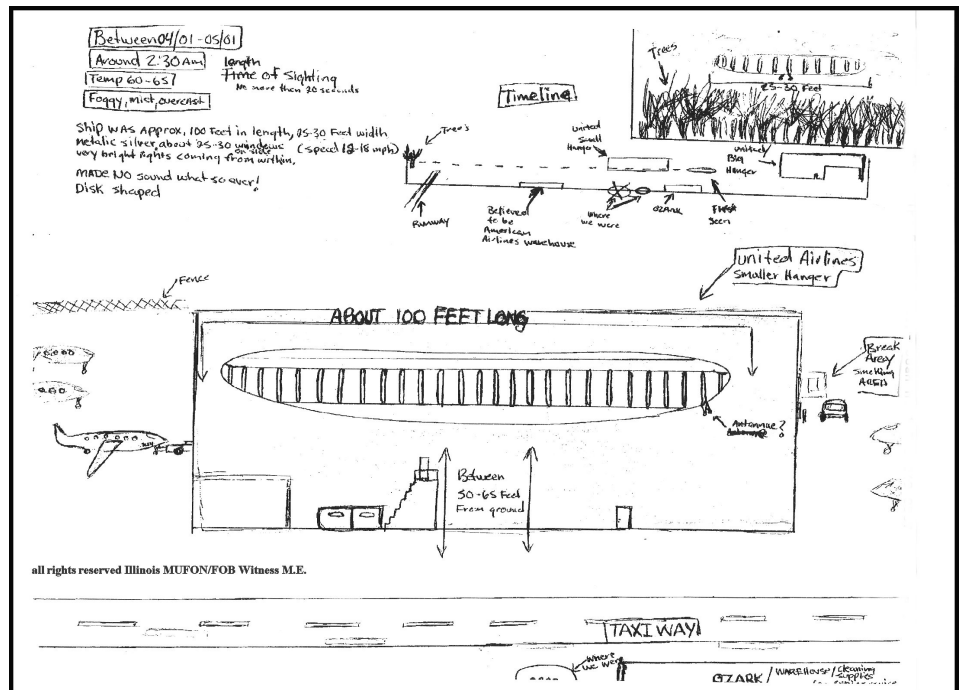 Between 04/01-05/01
Around 2:30 AM
Temp 60-65
Foggy, mist, overcast
length
Time of Sighting
No more than 20 seconds
Ship WAS Approx, 100 Feet in length, 25-30 Feet width
metalic silver, about 25-30 windows on side (speed 12-18 mph)
very bright lights coming from within.
MADE NO sound what so ever!
Disk shaped
Timeline
Trees
25-30 Feet
Tree's
United
Small
Hanger
united
Big
Hanger
Runway
Believed
to be
American
Airlines warehouse
where
we were
OZARK
First
Seen
united Airlines
Smaller Hanger
Fence
ABOUT 100 FEET LONG
Break
Area/
Smoking
AREA
Antennae?
Between
50-65 Feet
From ground
all rights reserved Illinois MUFON/FOB Witness M.E.
TAXIWAY
Where
we were
OZARK / WAREHOUSE / cleaning
supplies